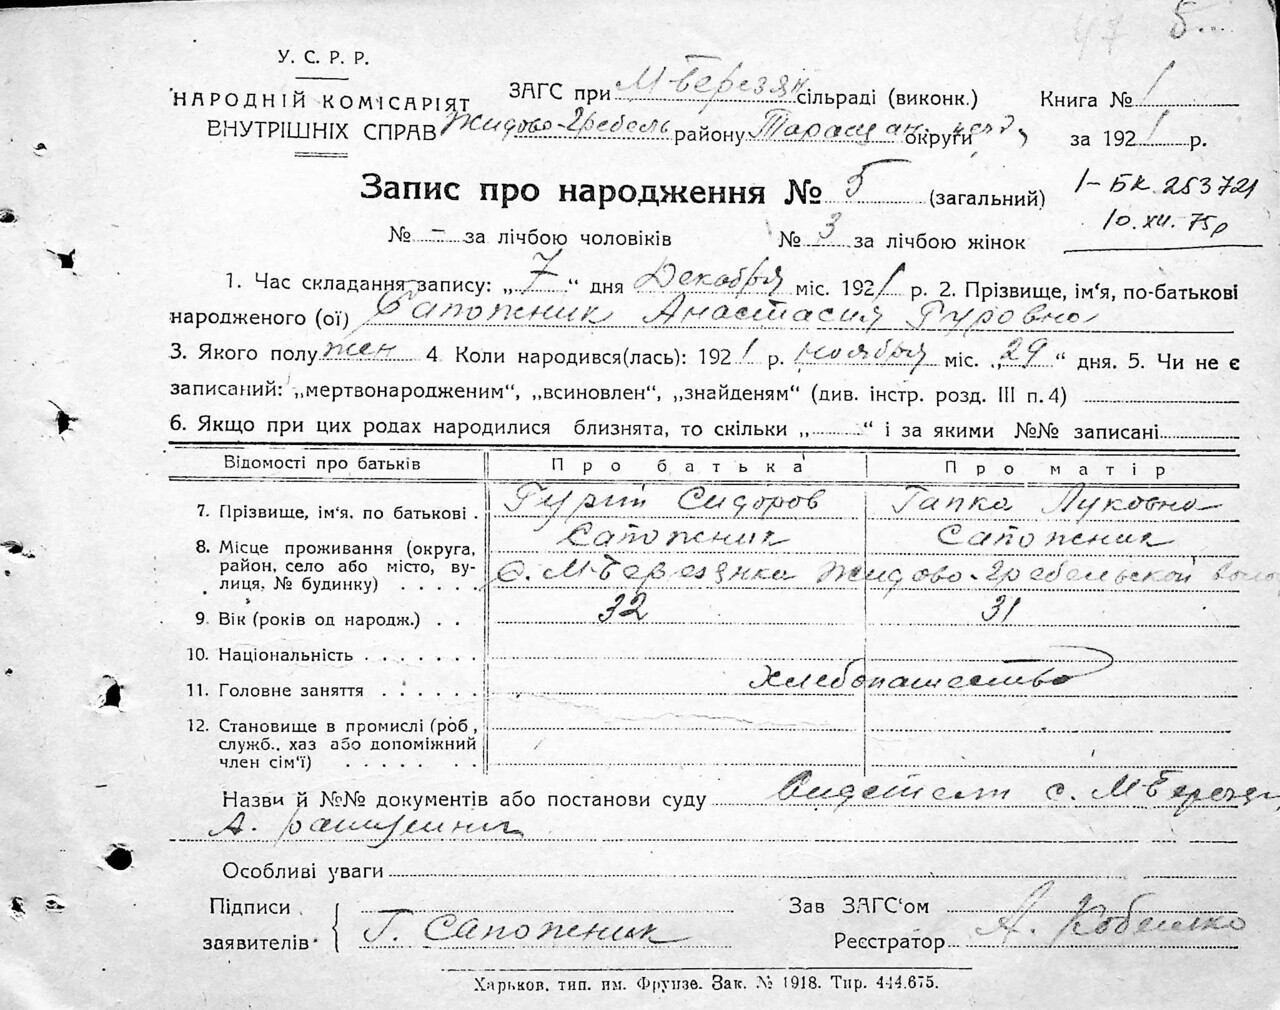 47 5...
У. С. Р. Р.
НАРОДНІЙ КОМІСАРІЯТ
ВНУТРІШНІХ СПРАВ
ЗАГС при М-Березян. сільраді (виконк.)
Жидово-Гребель району Таращан. округи
Книга № 1
за 1921 р.
Запис про народження № 5 (загальний)
1-БК 253721
10.XII.75р
№ – за лічбою чоловіків № 3 за лічбою жінок
1. Час складання запису: „7“ дня Декабря міс. 1921 р. 2. Прізвище, ім‘я, по-батькові
народженого (ої) Сапожник Анастасия Гуровна
3. Якого полу жен 4 Коли народився(лась): 1921 р. ноября міс. „29“ дня. 5. Чи не є
записаний: „мертвонародженим“, „всиновлен“, „знайденям“ (див. інстр. розд. III п. 4)
6. Якщо при цих родах народилися близнята, то скільки „ “ і за якими №№ записані
Відомості про батьків Про батька Про матір
7. Прізвище, ім‘я, по батькові . Гурій Сидоров Гапка Луковна
Сапожник Сапожник
8. Місце проживання (округа, район, село або місто, вулиця, № будинку) . . . . .
с. М-Березянка Жидово-Гребельской воло
9. Вік (років од народж.) . . 32 31
10. Національність . . . . . . .
11. Головне заняття . . . . . . Хлебопашество
12. Становище в промислі (роб, служб., хаз або допоміжний член сім‘ї) . . . . . .
Назви й №№ документів або постанови суду с. М-Березян
А.
Особливі уваги
Підписи заявителів Г. Сапожник
Зав ЗАГС‘ом
Реєстратор А.
Харьков, тип. им. Фрунзе. Зак. № 1918. Тир. 444.675.